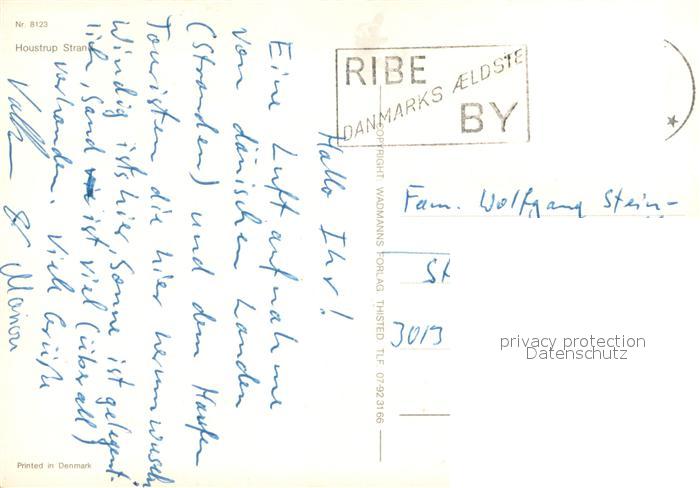 Nr. 8123
Houstrup Strand
Hallo Ihr!
Eine Luftaufnahme
von dänischen Landen
(Stranden) und dem Haufen
Touristen die hier herumwuseln
Windig ist's hier, Sonne ist gelegent-
lich, Sand ist viel (überall)
vorhanden. Viele Grüße
& Manon
Printed in Denmark
COPYRIGHT WADMANNS FORLAG THISTED TLF. 07-92 3166
RIBE
DANMARKS ÆLDSTE
BY
Fam. Wolfgang Stein-
St
3013
privacy protection
Datenschutz